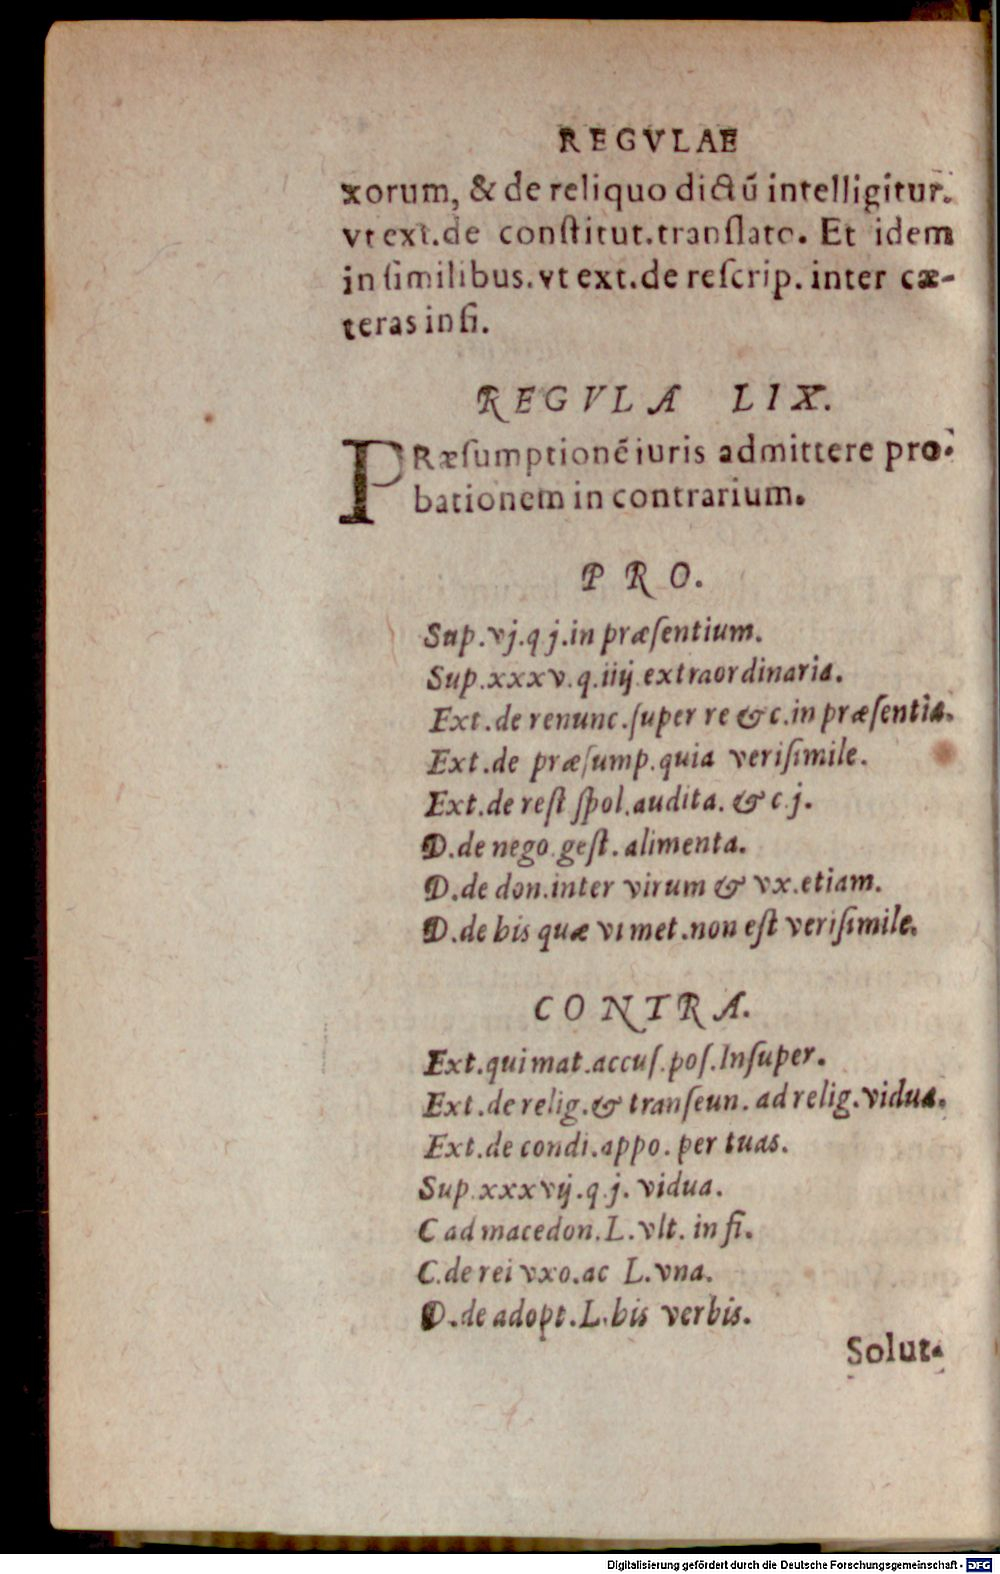 REGVLAE
xorum, & de reliquo dictū intelligitur.
vt ext.de constitut.translato. Et idem
in similibus. vt ext.de rescrip. inter cæ-
teras in fi.
REGVLA LIX.
PRæsumptionē iuris admittere pro-
bationem in contrarium.
PRO.
Sup.vj.q j.in præsentium.
Sup.xxxv.q.iiij extraordinaria.
Ext.de renunc.super re & c.in præsentia.
Ext.de præsump.quia verisimile.
Ext.de rest spol.audita. & c j.
D.de nego gest.alimenta.
D.de don.inter virum & vx.etiam.
D.de his quæ vi met.non est verisimile.
CONTRA.
Ext.qui mat.accus.pos.Insuper.
Ext.de relig.& transeun. ad relig.vidua.
Ext.de condi.appo.per tuas.
Sup.xxxvij.q.j. vidua.
C ad macedon.L.vlt. in fi.
C.de rei vxo.ac L.vna.
D.de adopt.L.his verbis.
Solut-
Digitalisierung gefördert durch die Deutsche Forschungsgemeinschaft - DFG